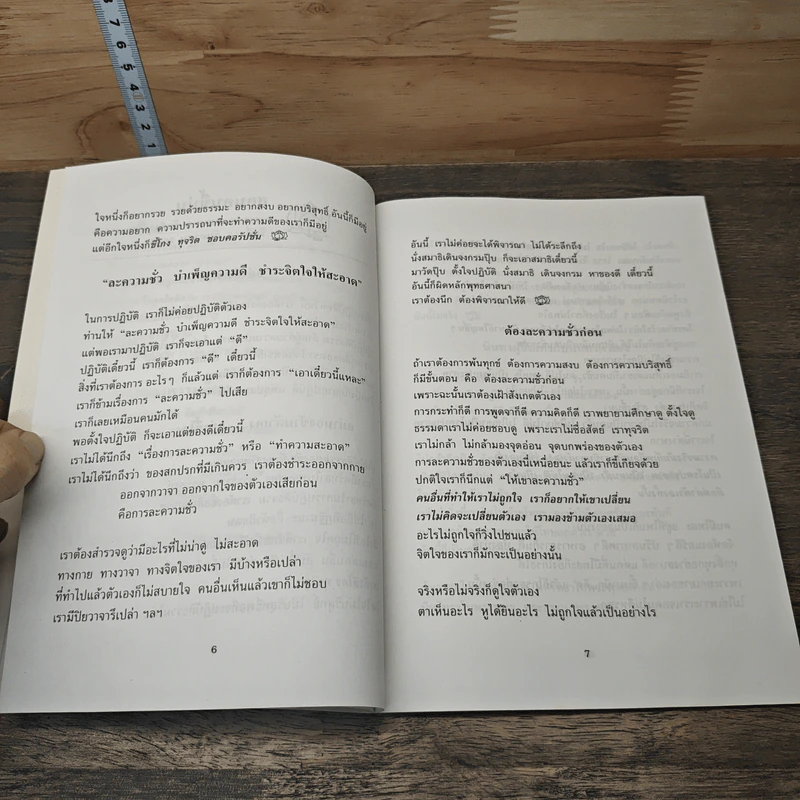 7
6
5
4
3
2
1
ใจหนึ่งก็อยากรวย รวยด้วยธรรมะ อยากสงบ อยากบริสุทธิ์ อันนี้ก็มีอยู่
คือความอยาก ความปรารถนาที่จะทำความดีของเราก็มีอยู่
แต่อีกใจหนึ่งก็ขี้โกง ทุจริต ชอบคอรัปชั่น
“ละความชั่ว บำเพ็ญความดี ชำระจิตใจให้สะอาด”
ในการปฏิบัติ เราก็ไม่ค่อยปฏิบัติตัวเอง
ท่านให้ “ละความชั่ว บำเพ็ญความดี ชำระจิตใจให้สะอาด”
แต่พอเรามาปฏิบัติ เราก็จะเอาแต่ “ดี”
ปฏิบัติเดี๋ยวนี้ เราก็ต้องการ “ดี” เดี๋ยวนี้
สิ่งที่เราต้องการ อะไรๆ ก็แล้วแต่ เราก็ต้องการ “เอาเดี๋ยวนี้แหละ”
เราก็ข้ามเรื่องการ “ละความชั่ว” ไปเสีย
เราก็เลยเหมือนคนมักได้
พอตั้งใจปฏิบัติ ก็จะเอาแต่ของดีเดี๋ยวนี้
เราไม่ได้นึกถึง “เรื่องการละความชั่ว” หรือ “ทำความสะอาด”
เราไม่ได้นึกถึงว่า ของสกปรกที่มีเกินควร เราต้องชำระออกจากกาย
ออกจากวาจา ออกจากใจของตัวเองเสียก่อน
คือการละความชั่ว
เราต้องสำรวจดูว่ามีอะไรที่ไม่น่าดู ไม่สะอาด
ทางกาย ทางวาจา ทางจิตใจของเรา มีบ้างหรือเปล่า
ที่ทำไปแล้วตัวเองก็ไม่สบายใจ คนอื่นเห็นแล้วเขาก็ไม่ชอบ
เรามีปิยวาจารึเปล่า ฯลฯ
6
อันนี้ เราไม่ค่อยจะได้พิจารณา ไม่ได้ระลึกถึง
นั่งสมาธิเดินจงกรมปุ๊บ ก็จะเอาสมาธิเดี๋ยวนี้
มาวัดปุ๊บ ตั้งใจปฏิบัติ นั่งสมาธิ เดินจงกรม หาของดี เดี๋ยวนี้
อันนี้ก็ผิดหลักพุทธศาสนา
เราต้องนึก ต้องพิจารณาให้ดี
ต้องละความชั่วก่อน
ถ้าเราต้องการพ้นทุกข์ ต้องการความสงบ ต้องการความบริสุทธิ์
ก็มีขั้นตอน คือ ต้องละความชั่วก่อน
เพราะฉะนั้นเราต้องเฝ้าสังเกตตัวเอง
การกระทำก็ดี การพูดจาก็ดี ความคิดก็ดี เราพยายามศึกษาดู ตั้งใจดู
ธรรมดาเราไม่ค่อยชอบดู เพราะเราไม่ซื่อสัตย์ เราทุจริต
เราไม่กล้า ไม่กล้ามองจุดอ่อน จุดบกพร่องของตัวเอง
การละความชั่วของตัวเองนี่เหนื่อยนะ แล้วเราก็ขี้เกียจด้วย
ปกติใจเราก็นึกแต่ “ให้เขาละความชั่ว”
คนอื่นที่ทำให้เราไม่ถูกใจ เราก็อยากให้เขาเปลี่ยน
เราไม่คิดจะเปลี่ยนตัวเอง เรามองข้ามตัวเองเสมอ
อะไรไม่ถูกใจก็วิ่งไปชนแล้ว
จิตใจของเราก็มักจะเป็นอย่างนั้น
จริงหรือไม่จริงก็ดูใจตัวเอง
ตาเห็นอะไร หูได้ยินอะไร ไม่ถูกใจแล้วเป็นอย่างไร
7